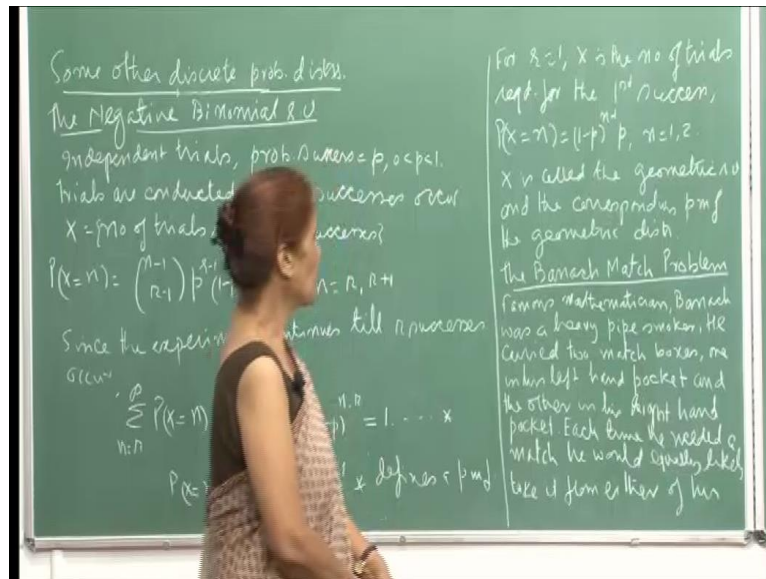 Some other discrete prob. distns.
The Negative Binomial R.V
Independent trials, prob. success = p, 0<p<1.
Trials are conducted successes occur
X = {no of trials, successes}
P(X=n) = (n-1 r-1) p^{r-1} (1- n=r, r+1
Since the experim ntinues till r successes
occur
∑ n=r P(X=n) p)^{n-r} = 1. .... *
P(X= * defines a pmf
For r=1, X is the no of trials
reqd. for the 1st success,
P(X=n) = (1-p) p, n=1,2.
X is called the geometric r.v
and the corresponding pmf
the geometric distn
The Banach Match Problem
Famous Mathematician, Banach
was a heavy pipe smoker, He
carried two match boxes, one
in his left hand pocket and
the other in his right hand
pocket. Each time he needed a
match he would equally likely
take it from either of his